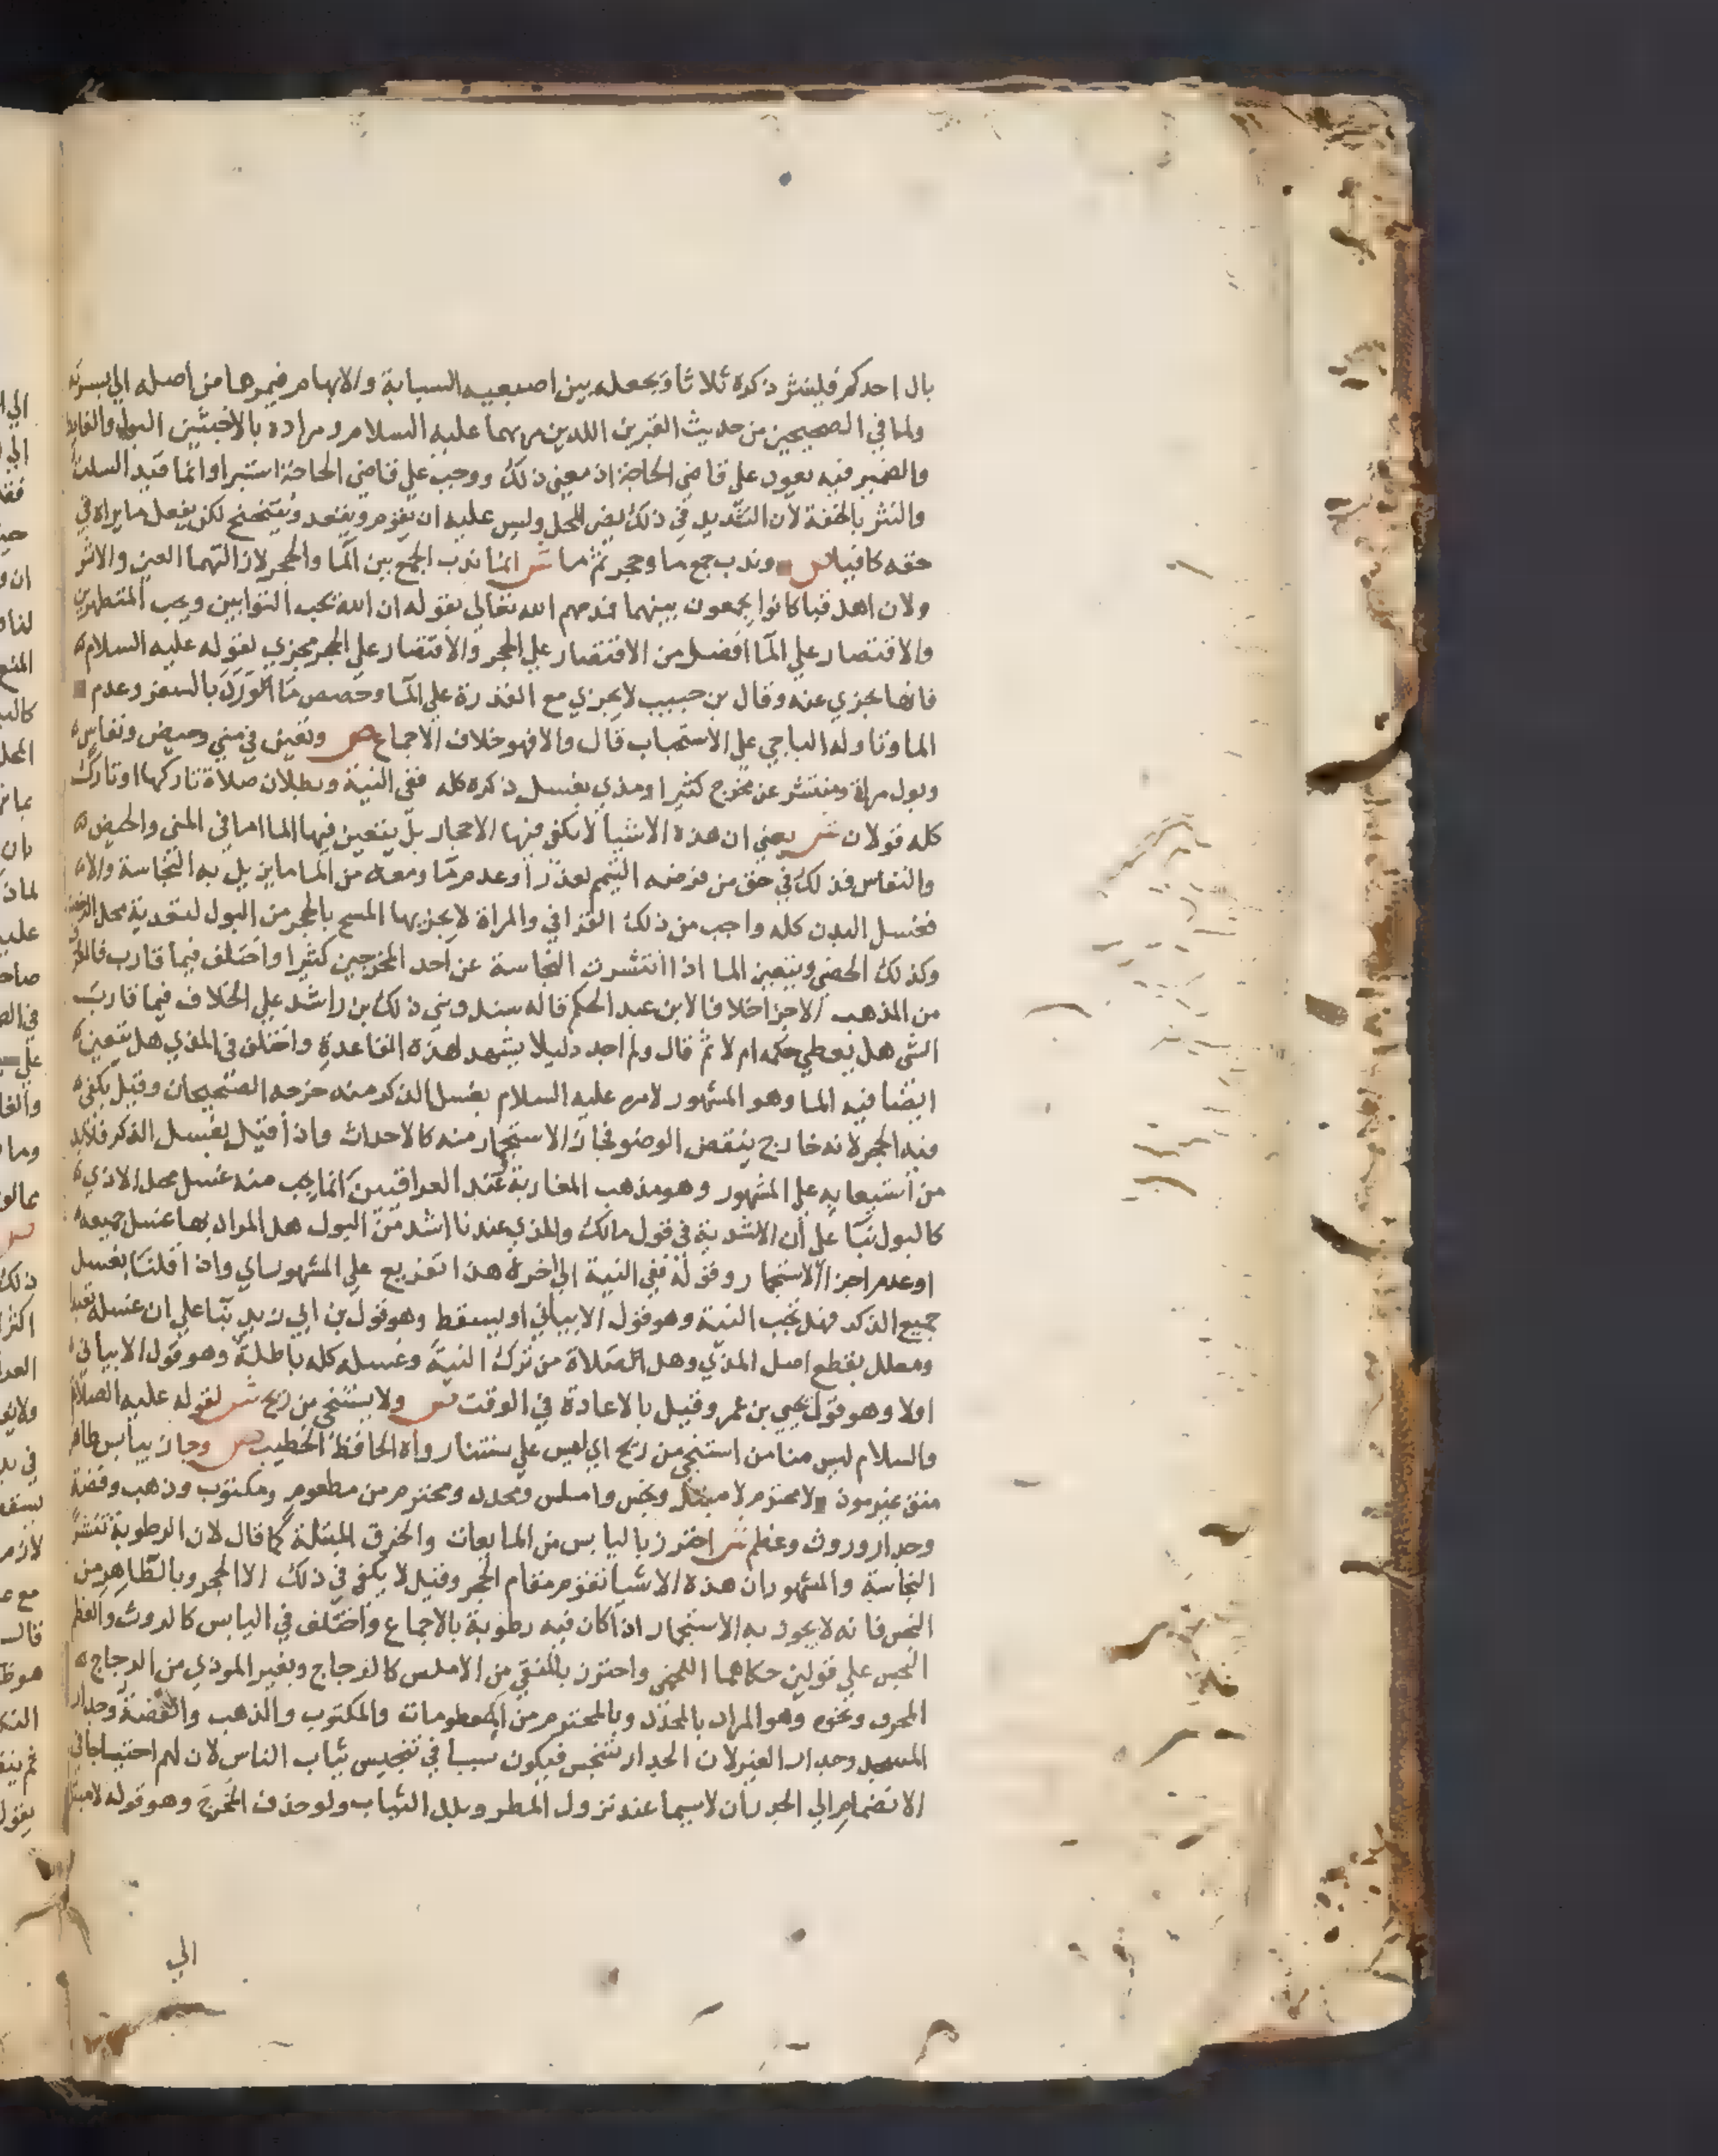 بال احدكم فلينثر ذكره ثلاثا ويجعله بين اصبعيه السبابة والابهام فيمرها من اصله الي بسرته
ولما في الصحيحين من حديث القبرين اللذين مر بهما عليه السلام ومراده بالاخبثين البول والغايط
والضمير فيه يعود علي قاضي الحاجة اذ معني ذلك ووجب علي قاضي الحاجة استبرا وانما قيد السلت
والنثر بالخفة لان التشديد في ذلك يضر المحل وليس عليه ان يقوم ويقعد ويتنحنح لكن يفعل ما يراه في
حقه كافيا ص وندب جمع ما وحجر ثم ما ش انما ندب الجمع بين الما والحجر لازالتهما العين والاثر
ولان اهل قبا كانوا يجمعون بينهما فمدحهم الله تعالي بقوله ان الله يحب التوابين ويحب المتطهرين
والاقتصار علي الما افضل من الاقتصار علي الحجر والاقتصار علي الحجر مجزي لقوله عليه السلام
فانها تجزي عنه وقال بن حبيب لا يجزي مع القدرة علي الما وخصص ما الورك بالسفر وعدم
الما وتاوله الباجي علي الاستحباب قال والا فهو خلاف الاجماع ص وتعين في مني وحيض ونفاس
وبول مراة ومنتشر عن مخرج كثيرا ومذي بغسل ذكره كله ففي النية وبطلان صلاة تاركها او تارك
كله قولان ش يعني ان هذه الاشيا لا يكفي فيها الاحجار بل يتعين فيها الما اما في المني والحيض
والنفاس فذلك في حق من فرضه التيمم لعذر او عدم ما ومعه من الما ما يزيل به النجاسة والا
فغسل البدن كله واجب من ذلك القرافي والمراة لا يجزيها المسح بالحجر من البول لتعديه محل الرخصة
وكذلك الخصي ويتعين الما اذا انتشرت النجاسة عن احد المخرجين كثيرا واختلف فيما قارب فالظاهر
من المذهب الاجزا خلافا لابن عبد الحكم قاله سند وبني ذلك بن راشد علي الخلاف فيما قارب
الشي هل يعطي حكمه ام لا ثم قال ولم اجد دليلا يشهد لهذه القاعدة واختلف في المذي هل يتعين
ايضا فيه الما وهو المشهور لامره عليه السلام بغسل الذكر منه خرجه الصحيحان وقيل يكفي
فيه الحجر لانه خارج ينقض الوضو فجاز الاستجمار منه كالاحداث واذا قيل بغسل الذكر فلا بد
من استيعابه علي المشهور وهو مذهب المغاربة وعند العراقيين انما يجب منه غسل محل الاذي
كالبول بنا علي ان الاشدية في قول مالك والمذي عندنا اشد من البول هل المراد بها غسل جميعه
او عدم اجزا الاستجمار وقوله ففي النية الي اخره هذا تفريع علي المشهور اي واذا قلنا بغسل
جميع الذكر فهل تجب النية وهو قول الابياني او يسقط وهو قول بن ابي زيد بنا علي ان غسله تعبد
ومعلل بقطع اصل المذي وهل الصلاة من ترك النية وغسله كله باطلة وهو قول الابياني
اولا وهو قول يحيي بن عمر وقيل بالاعادة في الوقت ص ولا يستنجي من ريح ش لقوله عليه الصلاة
والسلام ليس منا من استنجي من ريح اي ليس علي سنتنا رواه الحافظ الخطيب ص وجاز بيابس طاهر
منق غير موذ لا محترم لا مبتل ونجس واملس ومحدد ومحترم من مطعوم ومكتوب وذهب وفضة
وجدار وروث وعظم ش احترز باليابس من المايعات والخرق المبتلة كما قال لان الرطوبة تنشر
النجاسة والمشهور ان هذه الاشيا تقوم مقام الحجر وقيل لا يكفي في ذلك الا الحجر وبالطاهر من
النجس فانه لا يجوز به الاستجمار اذا كان فيه رطوبة بالاجماع واختلف في اليابس كالروث والعظم
النجس علي قولين حكاهما اللخمي واحترز بالمنقي من الاملس كالزجاج وبغير الموذي من الزجاج
المحرف ونحوه وهو المراد بالمحدد وبالمحترم من المطعومات والمكتوب والذهب والفضة وجدار
المسجد وجدار الغير لان الجدار تتنجس فيكون سببا في تنجيس ثياب الناس لان لهم احتياجا في
الانضمام الي الجدران لاسيما عند نزول المطر وبلل الثياب ولو حذف المخرج وهو قوله لا مبتل
الي